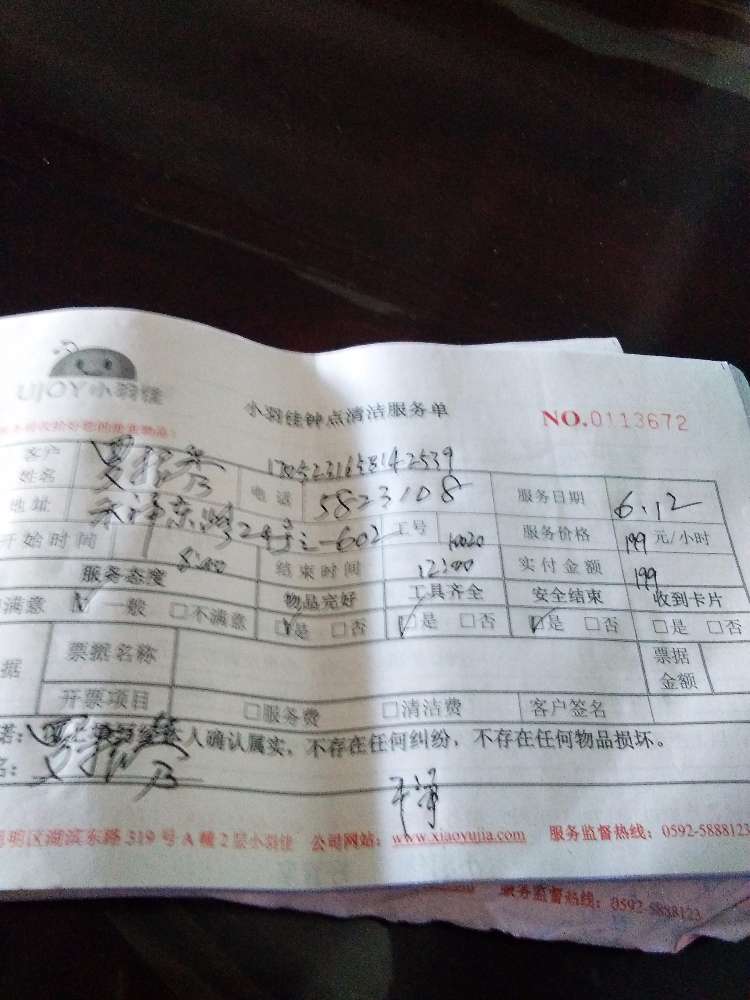 UJOY小羽佳
小羽佳钟点清洁服务单 NO.0113672
客户姓名 电话 5823108 服务日期 6.12
地址 2-602 工号 10020 服务价格 199 元/小时
开始时间 8:00 结束时间 12:00 实付金额 199
服务态度 物品完好 工具齐全 安全结束 收到卡片
满意 一般 □不满意 是 □否 是 □否 是 □否 □是 □否
据 票据名称 票据金额
开票项目 □服务费 □清洁费 客户签名
人确认属实，不存在任何纠纷，不存在任何物品损坏。
干净
明区湖滨东路319号A幢2层小羽佳 公司网站：www.xiaoyujia.com 服务监督热线：0592-5888123
服务监督热线：0592-5888123